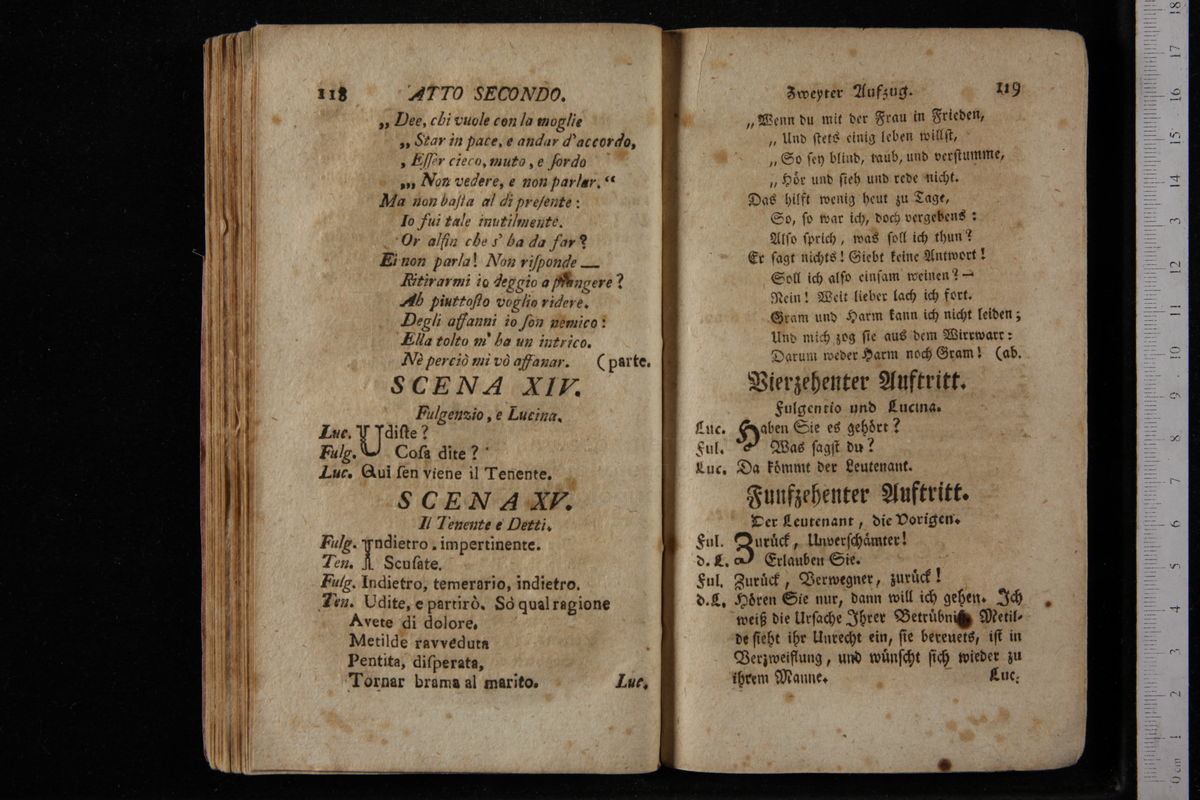 118 ATTO SECONDO.
„ Dee, chi vuole con la moglie
„ Star in pace, e andar d'accordo,
, Eſſer cieco, muto, e ſordo
„, Non vedere, e non parlar. “
Ma non baſta al dì preſente :
Io fui tale inutilmente.
Or alfin che s' ha da far ?
Ei non parla! Non riſponde —
Ritirarmi io deggio a piangere ?
Ah piuttoſto voglio ridere.
Degli affanni io ſon nemico :
Ella tolto m' ha un intrico.
Nè perciò mi vò affanar. (parte.
SCENA XIV.
Fulgenzio, e Lucina.
Luc. Udiſte ?
Fulg. Coſa dite ?
Luc. Qui ſen viene il Tenente.
SCENA XV.
Il Tenente e Detti.
Fulg. Indietro . impertinente.
Ten. Scuſate.
Fulg. Indietro, temerario, indietro.
Ten. Udite, e partirò. Sò qual ragione
Avete di dolore.
Metilde ravveduta
Pentita, diſperata,
Tornar brama al marito. Luc.
Zweyter Aufzug. 119
„Wenn du mit der Frau in Frieden,
„ Und ſtets einig leben willſt,
„ So ſey blind, taub, und verſtumme,
„ Hör und ſieh und rede nicht.
Das hilft wenig heut zu Tage,
So, ſo war ich, doch vergebens :
Alſo ſprich, was ſoll ich thun ?
Er ſagt nichts! Giebt keine Antwort!
Soll ich alſo einſam weinen? —
Nein! Weit lieber lach ich fort.
Gram und Harm kann ich nicht leiden;
Und mich zog ſie aus dem Wirrwarr:
Darum weder Harm noch Gram! (ab.
Vierzehenter Auftritt.
Fulgentio und Lucina.
Luc. Haben Sie es gehört?
Ful. Was ſagſt du?
Luc. Da kömmt der Leutenant.
Funfzehenter Auftritt.
Der Leutenant, die Vorigen.
Ful. Zurück, Unverſchämter!
d. L. Erlauben Sie.
Ful. Zurück, Verwegner, zurück!
d. L. Hören Sie nur, dann will ich gehen. Ich
weiß die Urſache Ihrer Betrübniß Metil-
de ſieht ihr Unrecht ein, ſie bereuets, iſt in
Verzweiflung, und wünſcht ſich wieder zu
ihrem Manne. Luc.
0 cm 1 2 3 4 5 6 7 8 9 10 11 12 13 14 15 16 17 18